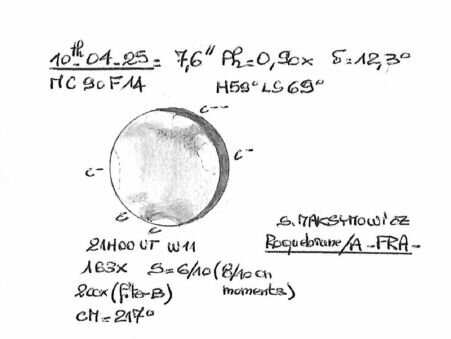 10th_04_25= 7,6" Ph=0,90x δ=12,3°
MC 90 F14 H59° LS 69°
C--
C-
C-
C
C
21H00 UT W11
163x S=6/10 (8/10 en
200x (filter-B) moments)
CM=217°
S. MAKSYMOWICZ
Roquebrune/A_FRA_